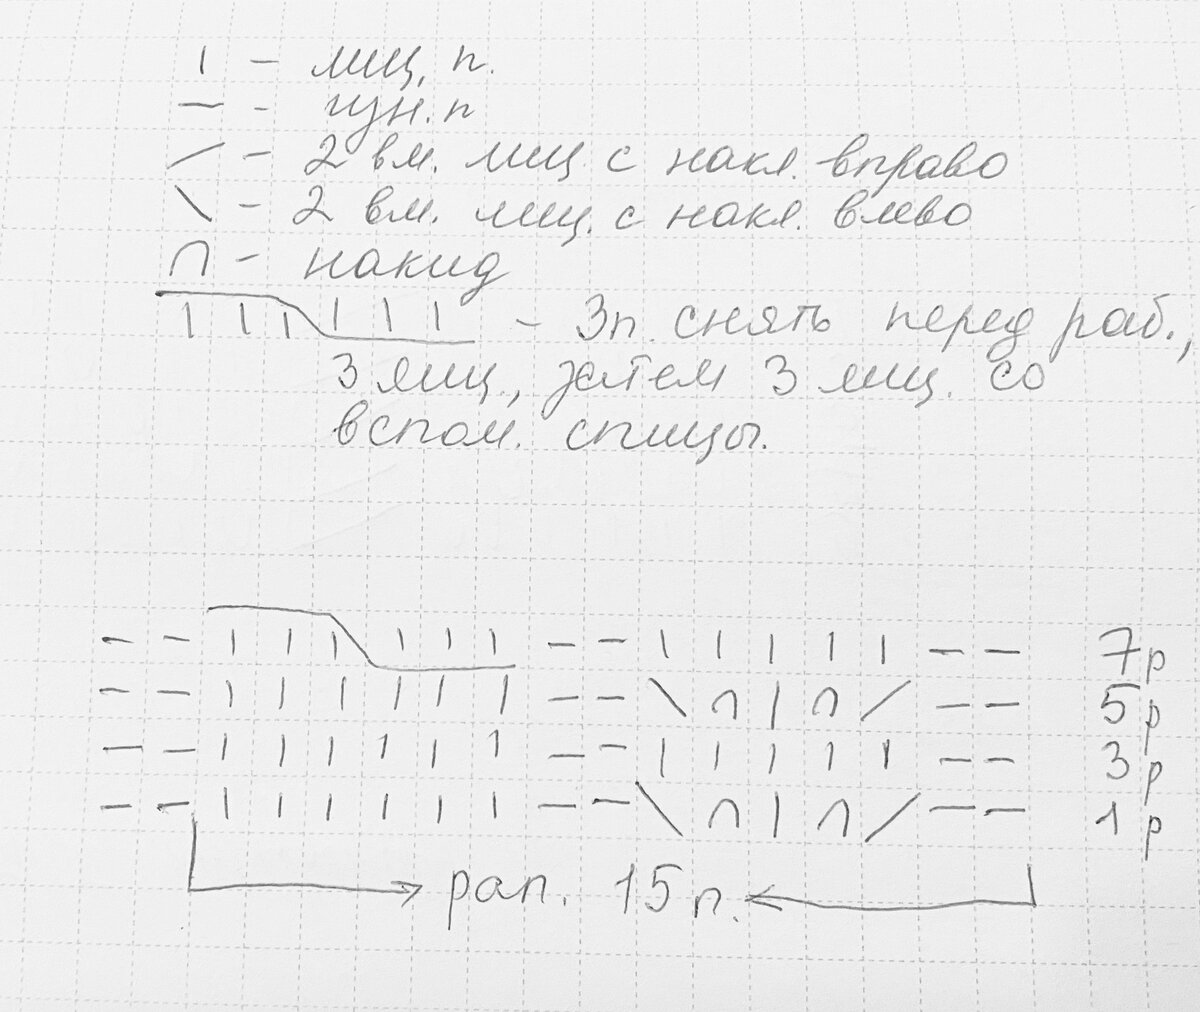 | - лиц. п.
— - изн. п
/ - 2 вм. лиц. с накл. вправо
\ - 2 вм. лиц. с накл. влево
∩ - накид
| | | | | | - 3п. снять перед раб.,
3 лиц., затем 3 лиц. со
вспом. спицы.
— — | | | | | | — — | | | | | — — 7р
— — | | | | | | — — \ ∩ | ∩ / — — 5р
— — | | | | | | — — | | | | | — — 3р
— — | | | | | | — — \ ∩ | ∩ / — — 1р
рап. 15 п.